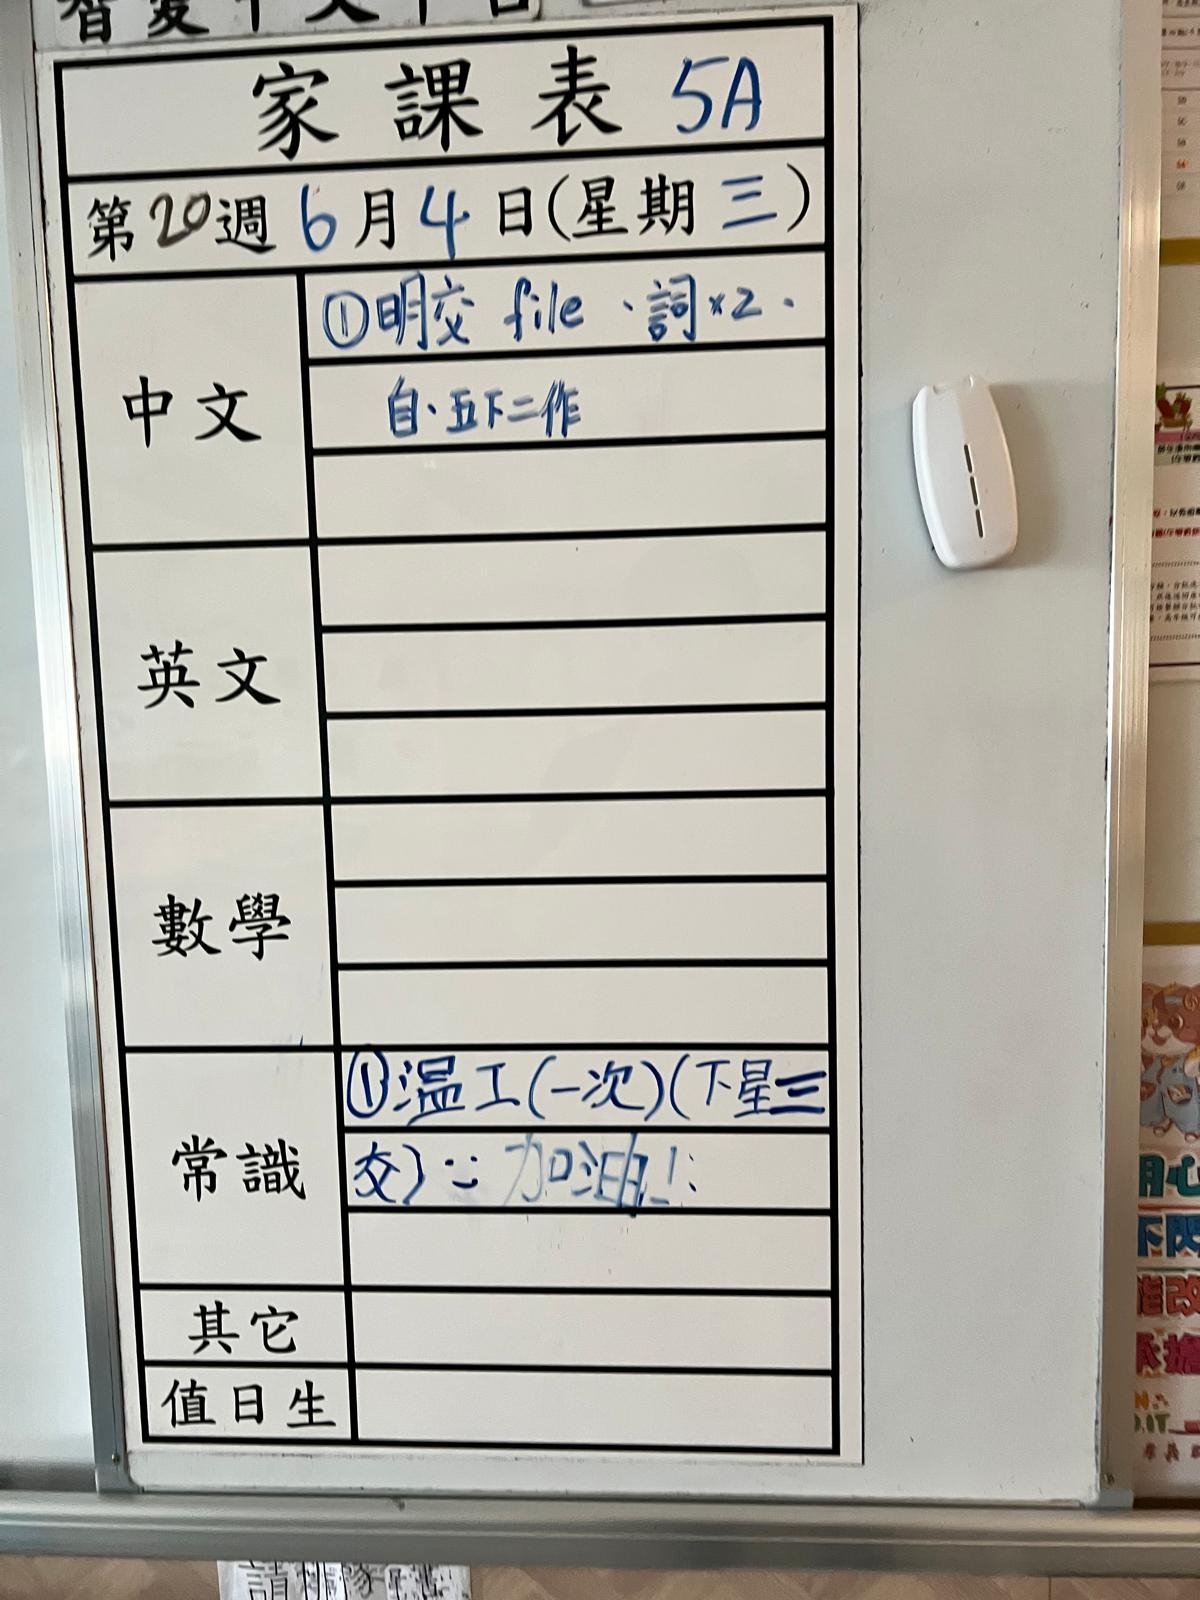 家課表 5A
第20週 6月4日(星期三)
中文
①明交 file、詞×2、
自、五下二作
英文
數學
常識
①溫工(一次)(下星三
交) 加油!
其它
值日生
用心